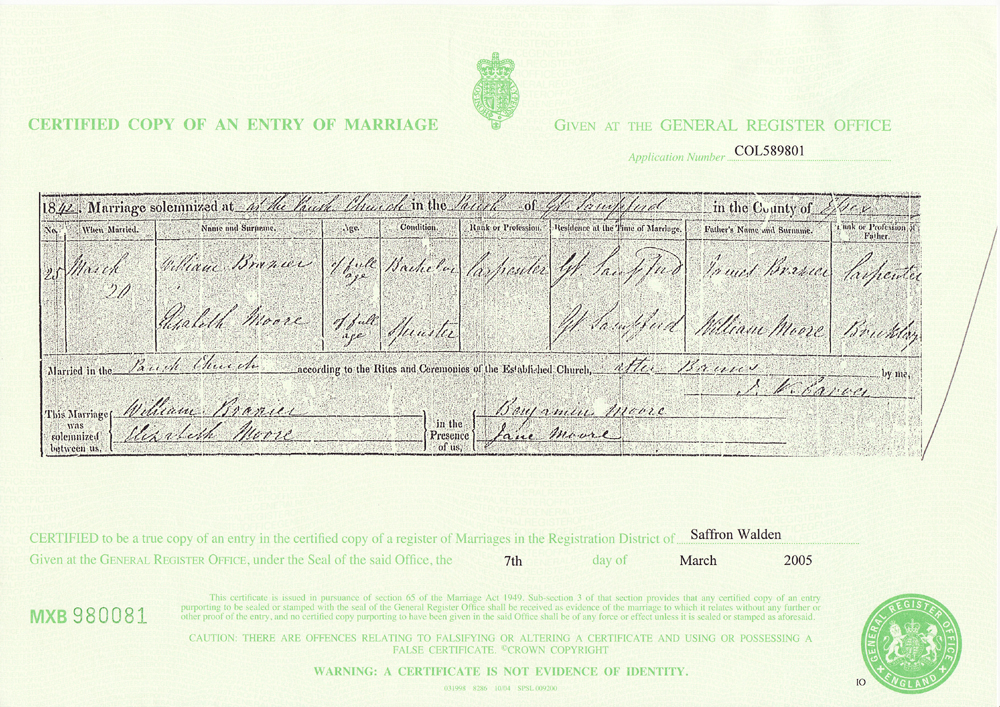 CERTIFIED COPY OF AN ENTRY OF MARRIAGE
GIVEN AT THE GENERAL REGISTER OFFICE
Application Number COL589801
1842. Marriage solemnized at at the Parish Church in the Parish of Gt Sampford in the County of Essex
No. When Married. Name and Surname. Age. Condition. Rank or Profession. Residence at the Time of Marriage. Father's Name and Surname. Rank or Profession of Father.
25 March 20 William Brazier of full age Bachelor Carpenter Gt Sampford James Brazier Carpenter
Elizabeth Moore of full age Spinster Gt Sampford William Moore Bricklayer
Married in the Parish Church according to the Rites and Ceremonies of the Established Church, after Banns by me,
This Marriage was solemnized between us, William Brazier Elizabeth Moore in the Presence of us, Benjamin Moore Jane Moore
CERTIFIED to be a true copy of an entry in the certified copy of a register of Marriages in the Registration District of Saffron Walden
Given at the GENERAL REGISTER OFFICE, under the Seal of the said Office, the 7th day of March 2005
This certificate is issued in pursuance of section 65 of the Marriage Act 1949. Sub-section 3 of that section provides that any certified copy of an entry
purporting to be sealed or stamped with the seal of the General Register Office shall be received as evidence of the marriage to which it relates without any further or
other proof of the entry, and no certified copy purporting to have been given in the said Office shall be of any force or effect unless it is sealed or stamped as aforesaid.
MXB 980081
CAUTION: THERE ARE OFFENCES RELATING TO FALSIFYING OR ALTERING A CERTIFICATE AND USING OR POSSESSING A
FALSE CERTIFICATE. ©CROWN COPYRIGHT
WARNING: A CERTIFICATE IS NOT EVIDENCE OF IDENTITY.
031998 8286 10/04 SPSL 009200
GENERAL REGISTER OFFICE
ENGLAND
IO